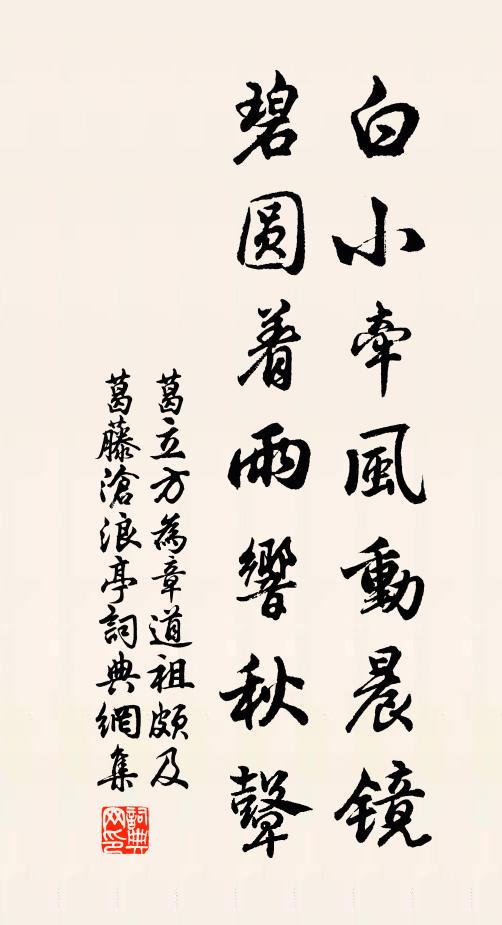 白小牽風動晨鏡
碧圆着雨響秋鼙
葛立方為章道祖頗及
葛藤滄浪亭詞典網集
詞典网印